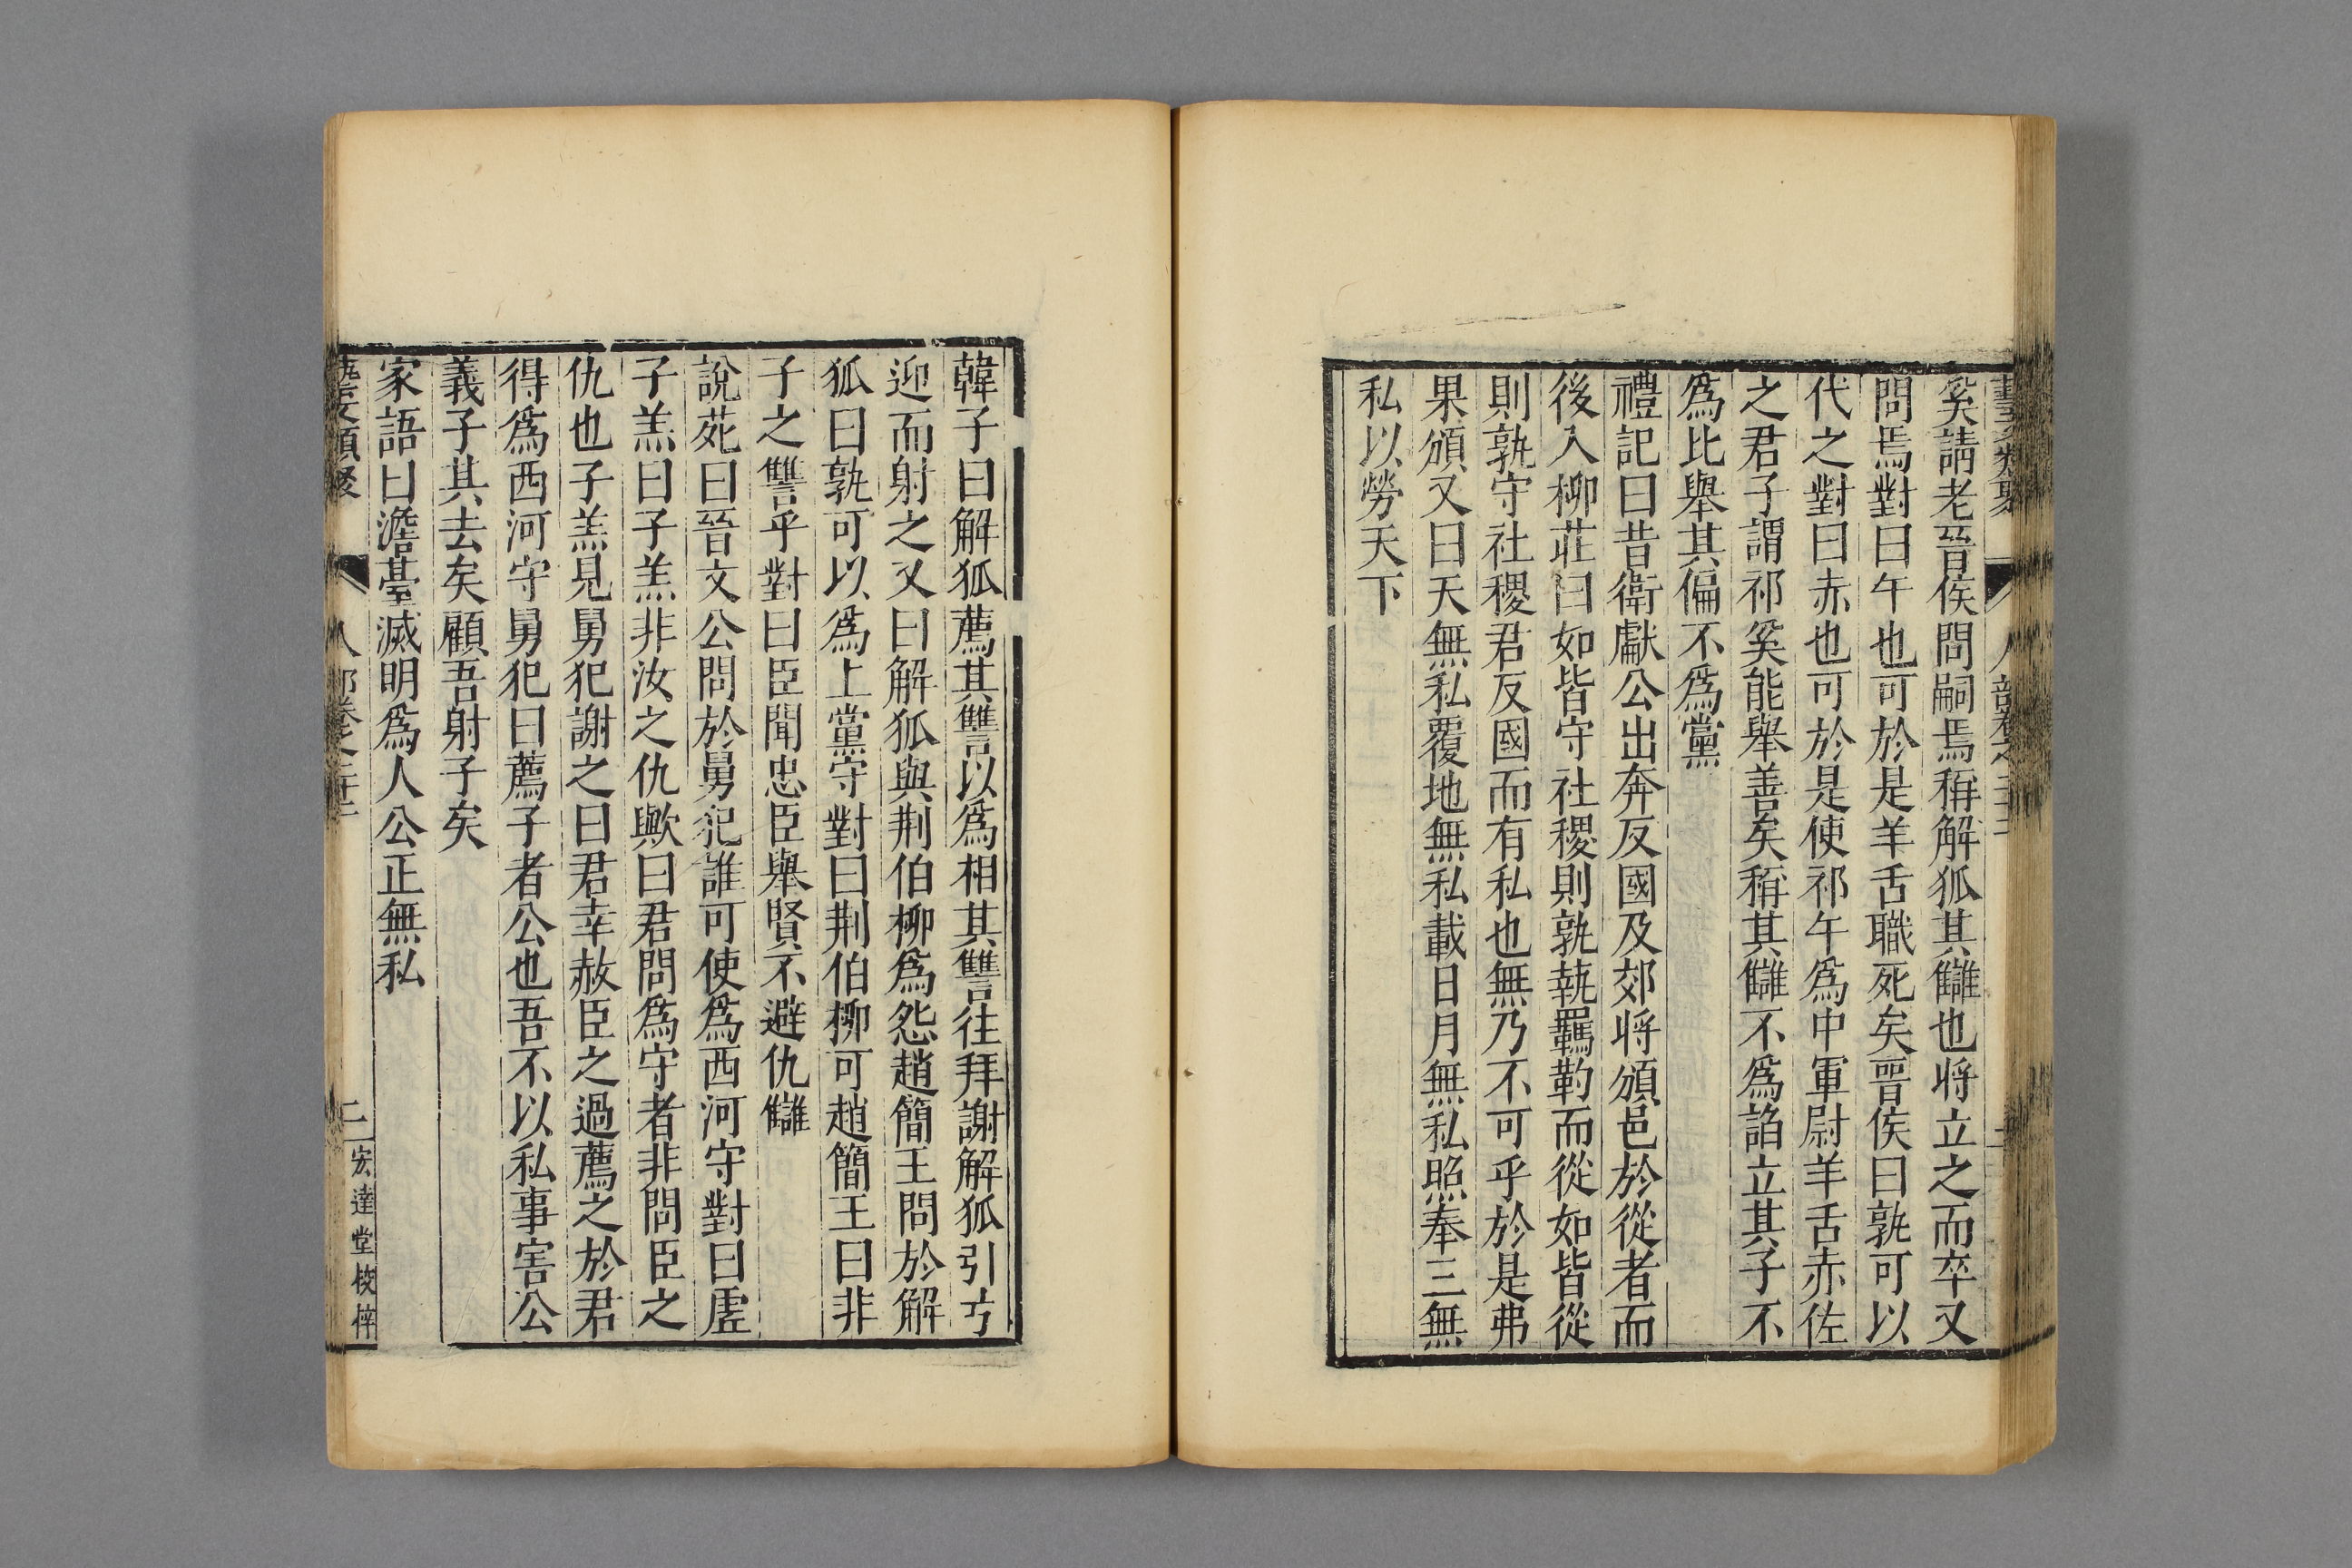 奚請老晉侯問嗣焉稱解狐其讎也将立之而卒又
問焉對曰午也可於是羊舌職死矣晉侯曰孰可以
代之對曰赤也可於是使祁午爲中軍尉羊舌赤佐
之君子謂祁奚能舉善矣稱其讎不爲諂立其子不
爲比舉其偏不爲黨
禮記曰昔衛獻公出奔反國及郊将頒邑於從者而
後入柳莊曰如皆守社稷則孰執羈靮而從如皆從
則孰守社稷君反國而有私也無乃不可乎於是弗
果頒又曰天無私覆地無私載日月無私照奉三無
私以勞天下
韓子曰解狐薦其讐以爲相其讐往拜謝解狐引弓
迎而射之又曰解狐與荆伯柳爲怨趙簡王問於解
狐曰孰可以爲上黨守對曰荆伯柳可趙簡王曰非
子之讐乎對曰臣聞忠臣舉賢不避仇讎
說苑曰晉文公問於舅犯誰可使爲西河守對曰虗
子羔曰子羔非汝之仇歟曰君問爲守者非問臣之
仇也子羔見舅犯謝之曰君幸赦臣之過薦之於君
得爲西河守舅犯曰薦子者公也吾不以私事害公
義子其去矣顧吾射子矣
家語曰澹臺滅明爲人公正無私
二 宏達堂校梓